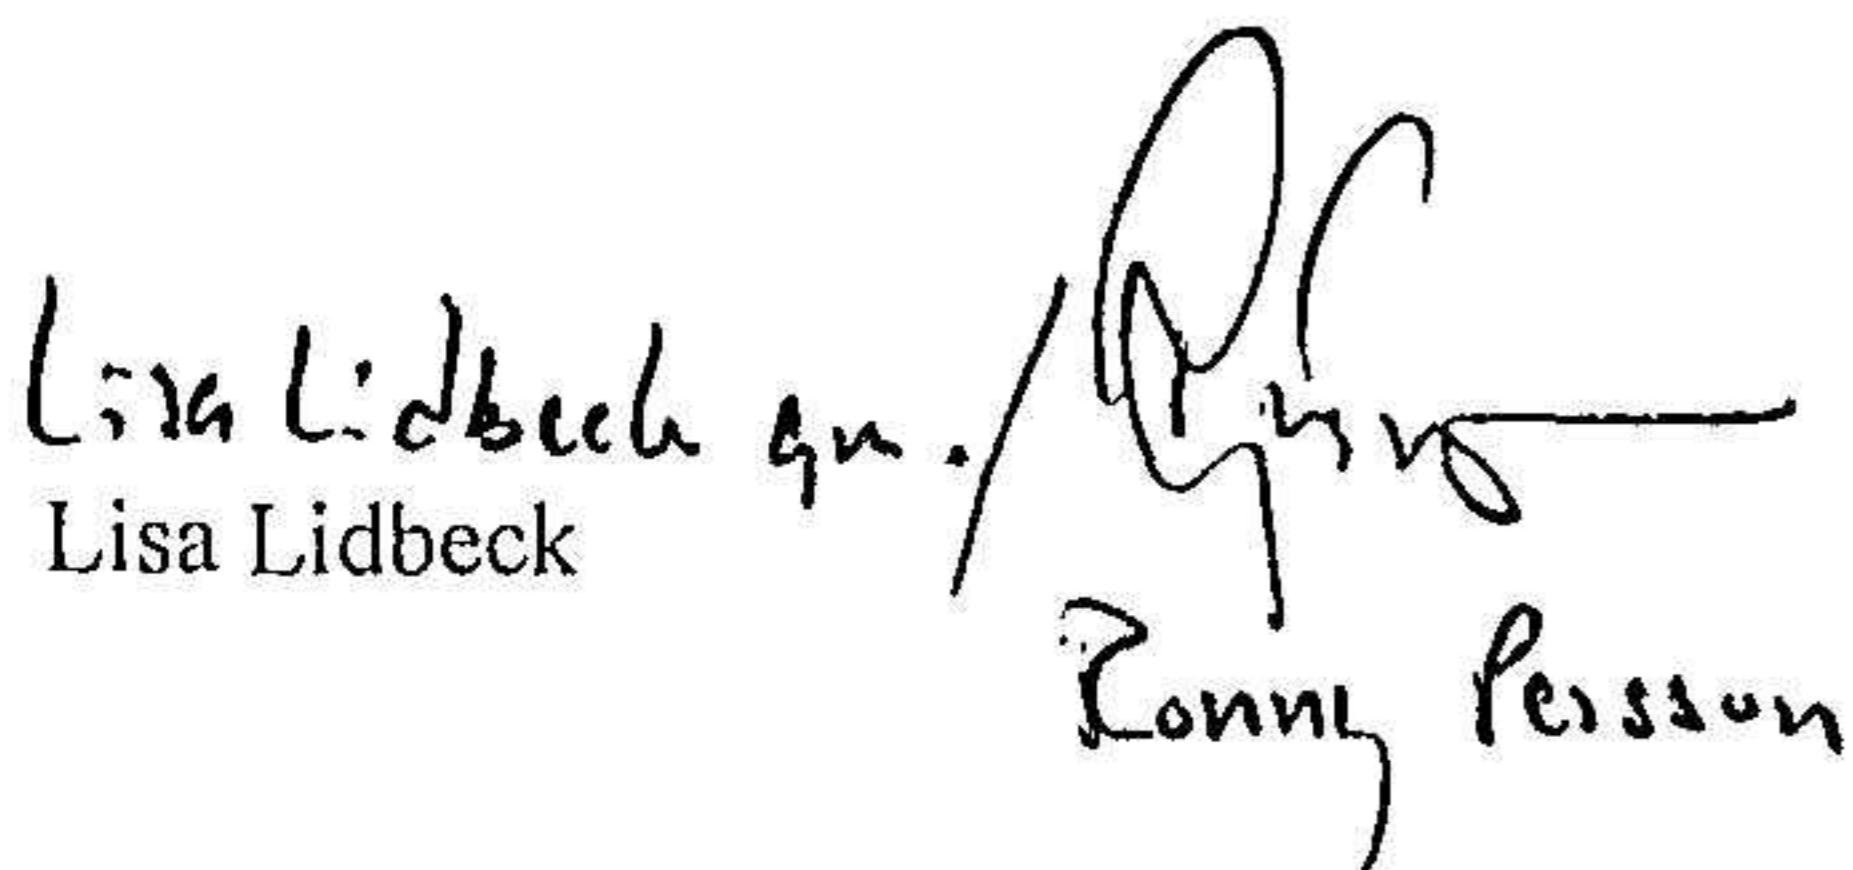 Lisa Lidbeck gm. /
Lisa Lidbeck
Ronny Persson